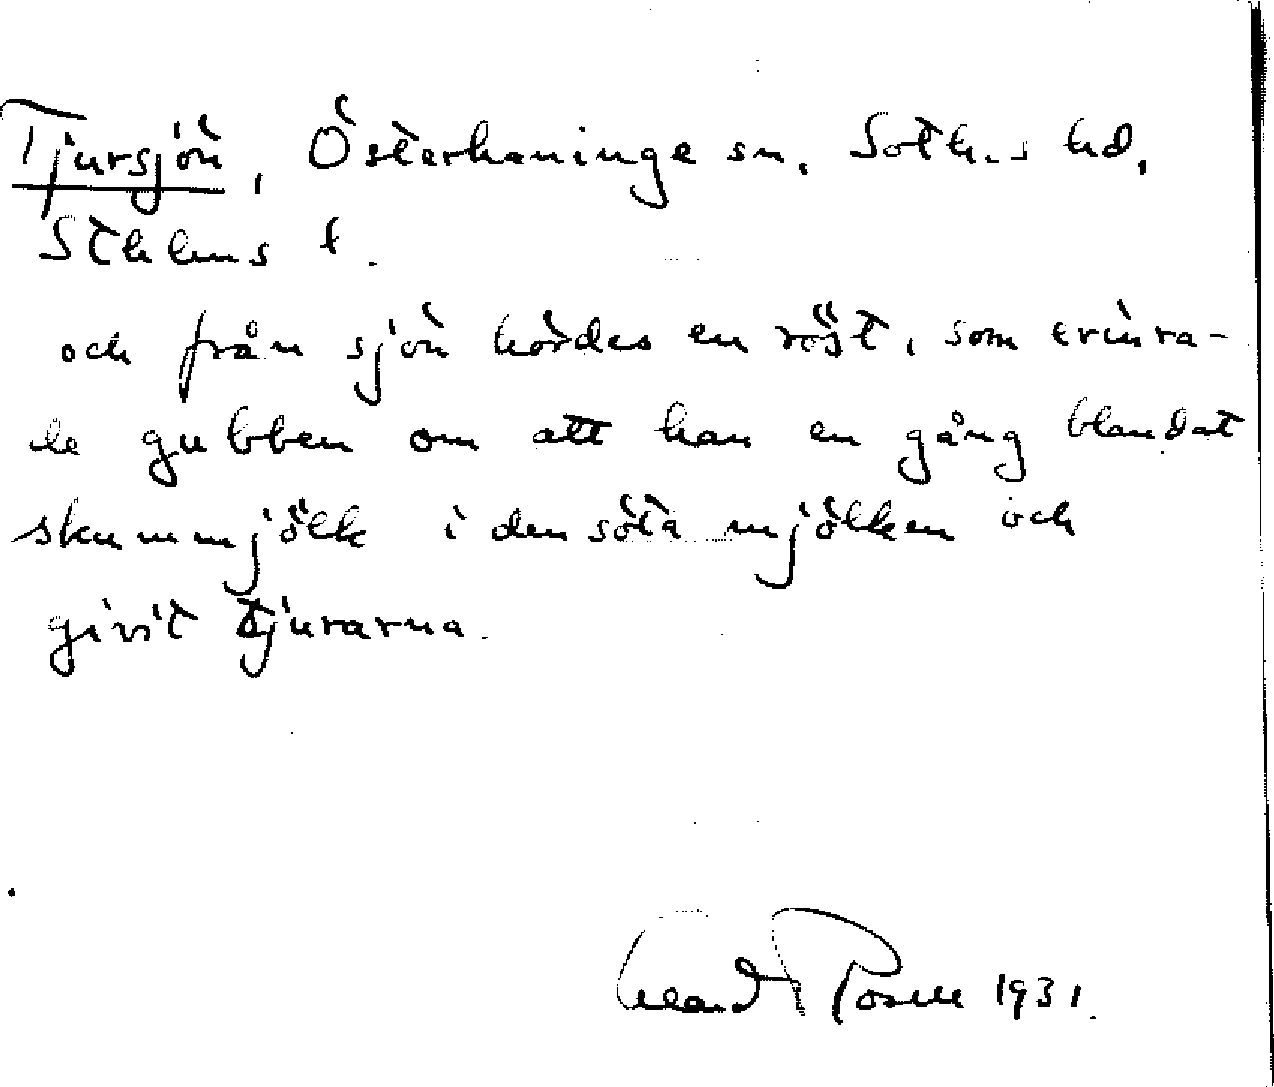 Tjursjön, Österhaninge sn. Soth.s hd,
Sthlms l.
och från sjön hördes en röst, som erinra-
de gubben om att han en gång blandat
skummjölk i den söta mjölken och
givit tjurarna.
Erland Rosell 1931.